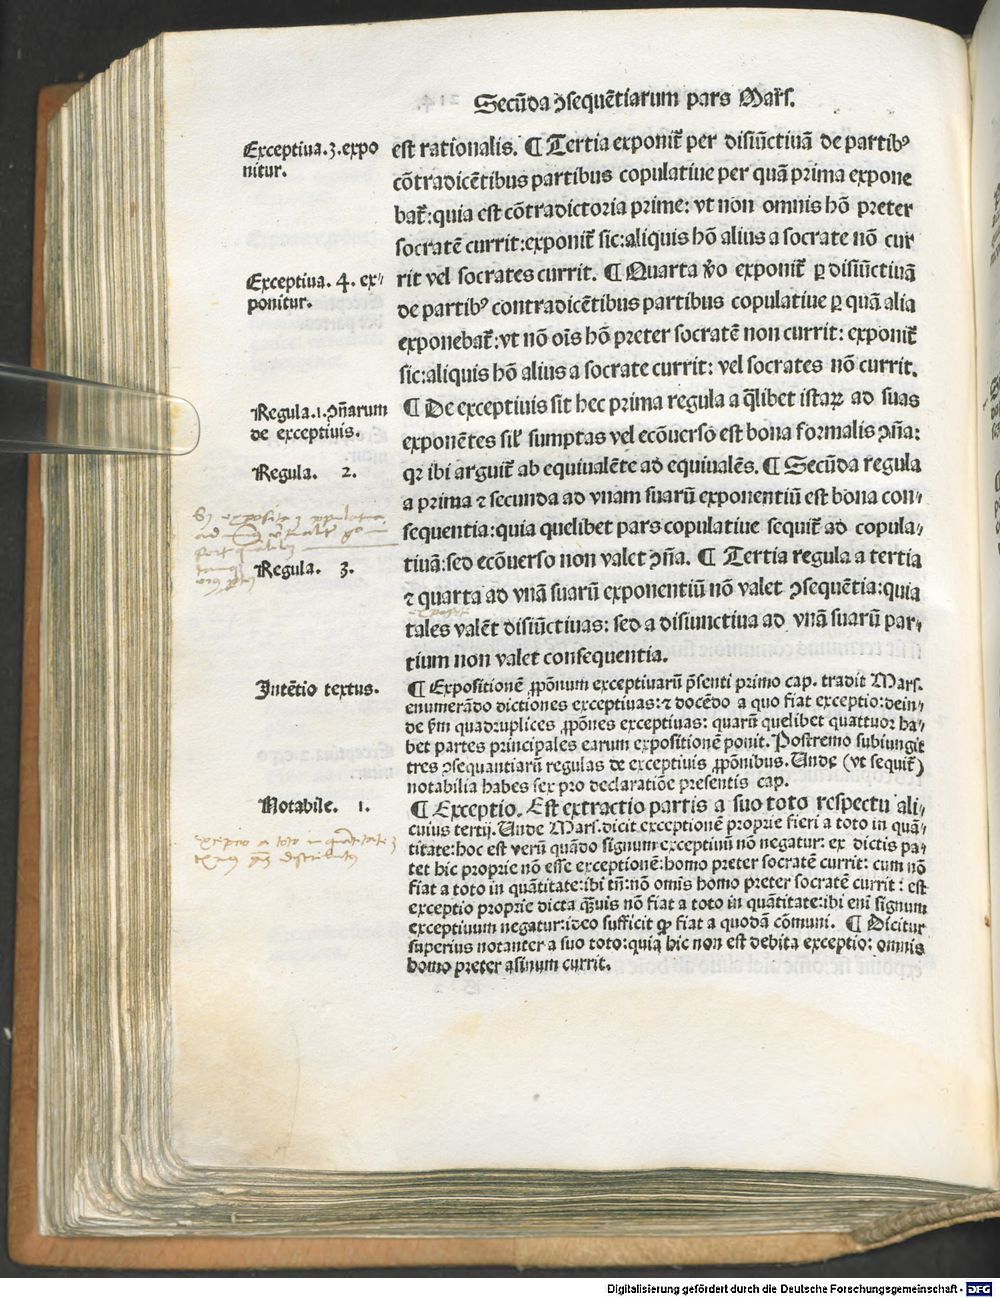 Secūda ↄsequētiarum pars Mars̄.
Exceptiua.3.expo
nitur.
est rationalis. ¶ Tertia exponit̄ per disiūctiuā de partibꝰ
cōtradicētibus partibus copulatiue per quā prima expone
bat̄: quia est cōtradictoria prime: vt non omnis hō preter
socratē currit: exponit̄ sic: aliquis hō alius a socrate nō cur
Exceptiua. 4. ex⸗
ponitur.
rit vel socrates currit. ¶ Quarta v̄o exponit̄ ꝑ disiūctiuā
de partibꝰ contradicētibus partibus copulatiue ꝑ quā alia
exponebat̄: vt nō oīs hō preter socratē non currit: exponit̄
sic: aliquis hō alius a socrate currit: vel socrates nō currit.
Regula.1.ↄñarum
de exceptiuis.
¶ De exceptiuis sit hec prima regula a q̄libet istaꝝ ad suas
exponētes sil̄ sumptas vel ecōuerso est bona formalis ↄña:
Regula. 2.
qꝛ ibi arguit̄ ab equiualēte ad equiualēs. ¶ Secūda regula
a prima ⁊ secunda ad vnam suarū exponentiū est bona con⸗
sequentia: quia quelibet pars copulatiue sequit̄ ad copula⸗
Regula. 3.
tiuā: sed ecōuerso non valet ↄña. ¶ Tertia regula a tertia
⁊ quarta ad vnā suarū exponentiū nō valet ↄsequētia: quia
tales valēt disiūctiuas: sed a disiunctiua ad vnā suarū par⸗
tium non valet consequentia.
Intētio textus.
¶ Expositionē ꝓpōnum exceptiuarū p̄senti primo cap. tradit Mars.
enumerādo dictiones exceptiuas: ⁊ docēdo a quo fiat exceptio: dein⸗
de ṽm quadruplices ꝓpōnes exceptiuas: quarū quelibet quattuor ha⸗
bet partes principales earum expositionē ponit. Postremo subiungit
tres ↄsequantiarū regulas de exceptiuis ꝓpōnibus. Unde (vt sequit̄)
notabilia habes sex pro declaratiōe presentis cap.
Notabile. 1.
¶ Exceptio. Est extractio partis a suo toto respectu ali⸗
cuius tertij. Unde Mars. dicit exceptionē proprie fieri a toto in quā⸗
titate: hoc est verū quādo signum exceptiuū nō negatur: ex dictis pa⸗
tet hic proprie nō esse exceptionē: homo preter socratē currit: cum nō
fiat a toto in quātitate: ibi tñ: nō omis homo preter socratē currit: est
exceptio proprie dicta q̄̃uis nō fiat a toto in quātitate: ibi eni signum
exceptiuum negatur: ideo sufficit ꝙ fiat a quodā cōmuni. ¶ Dicitur
superius notanter a suo toto: quia hic non est debita exceptio: omnis
homo preter asinum currit.
exceptio a toto in quantitate
Digitalisierung gefördert durch die Deutsche Forschungsgemeinschaft - DFG